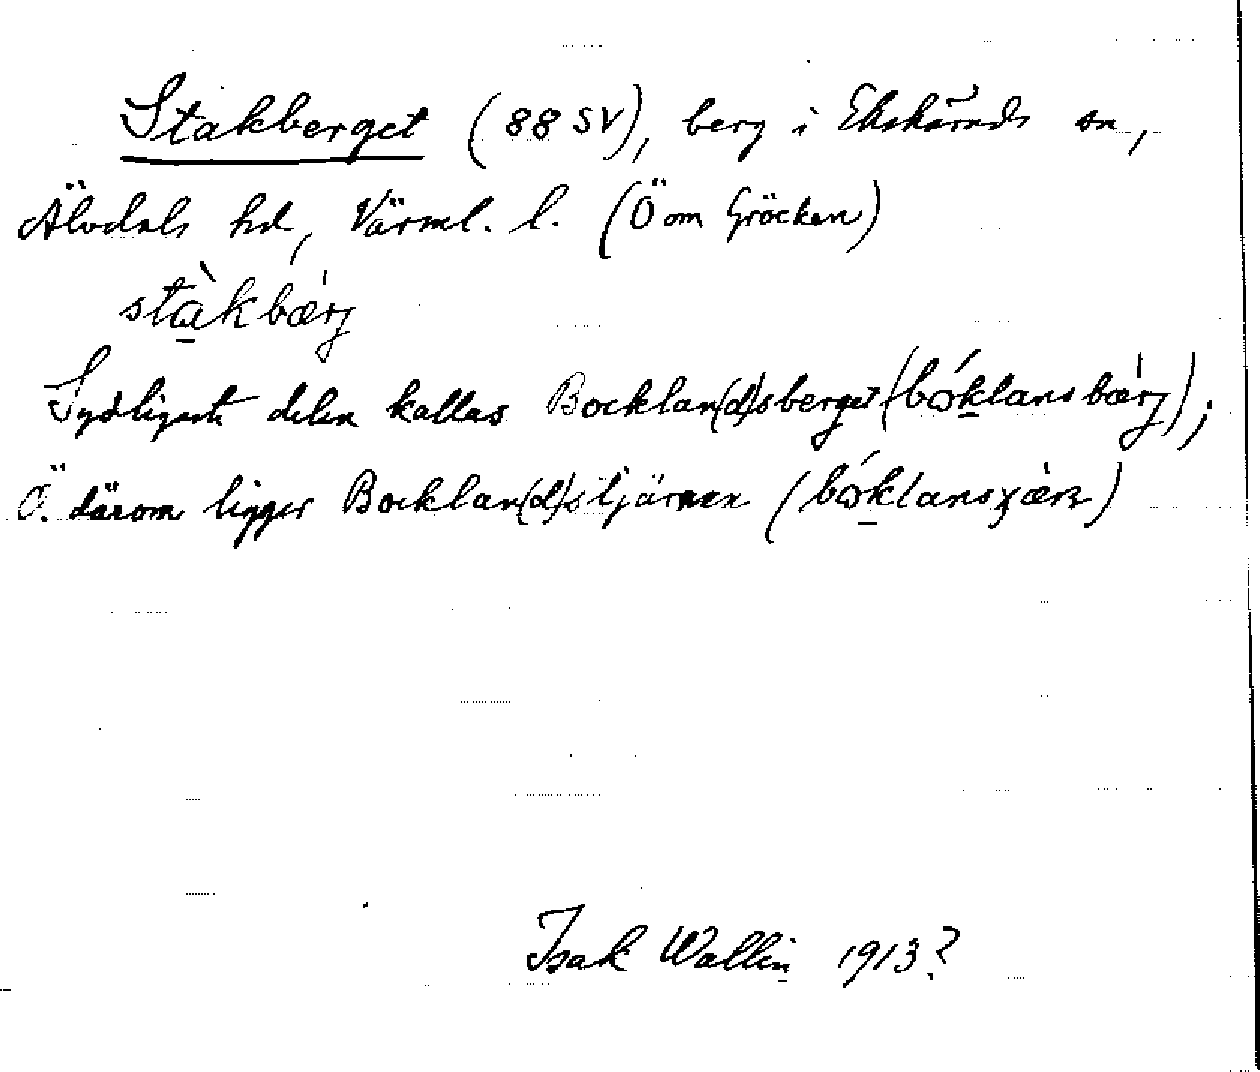 Stakberget (88 SV), berg i Ekshärads sn,
Älvdals hd, Värml. l. (Ö om Gröcken)
stàkbærj
Sydligaste delen kallas Bocklan(d)sberget (bóklansbærj);
Ö. därom ligger Bocklan(d)stjärnen (bóklansɟærn)
Isak Wallin 1913?